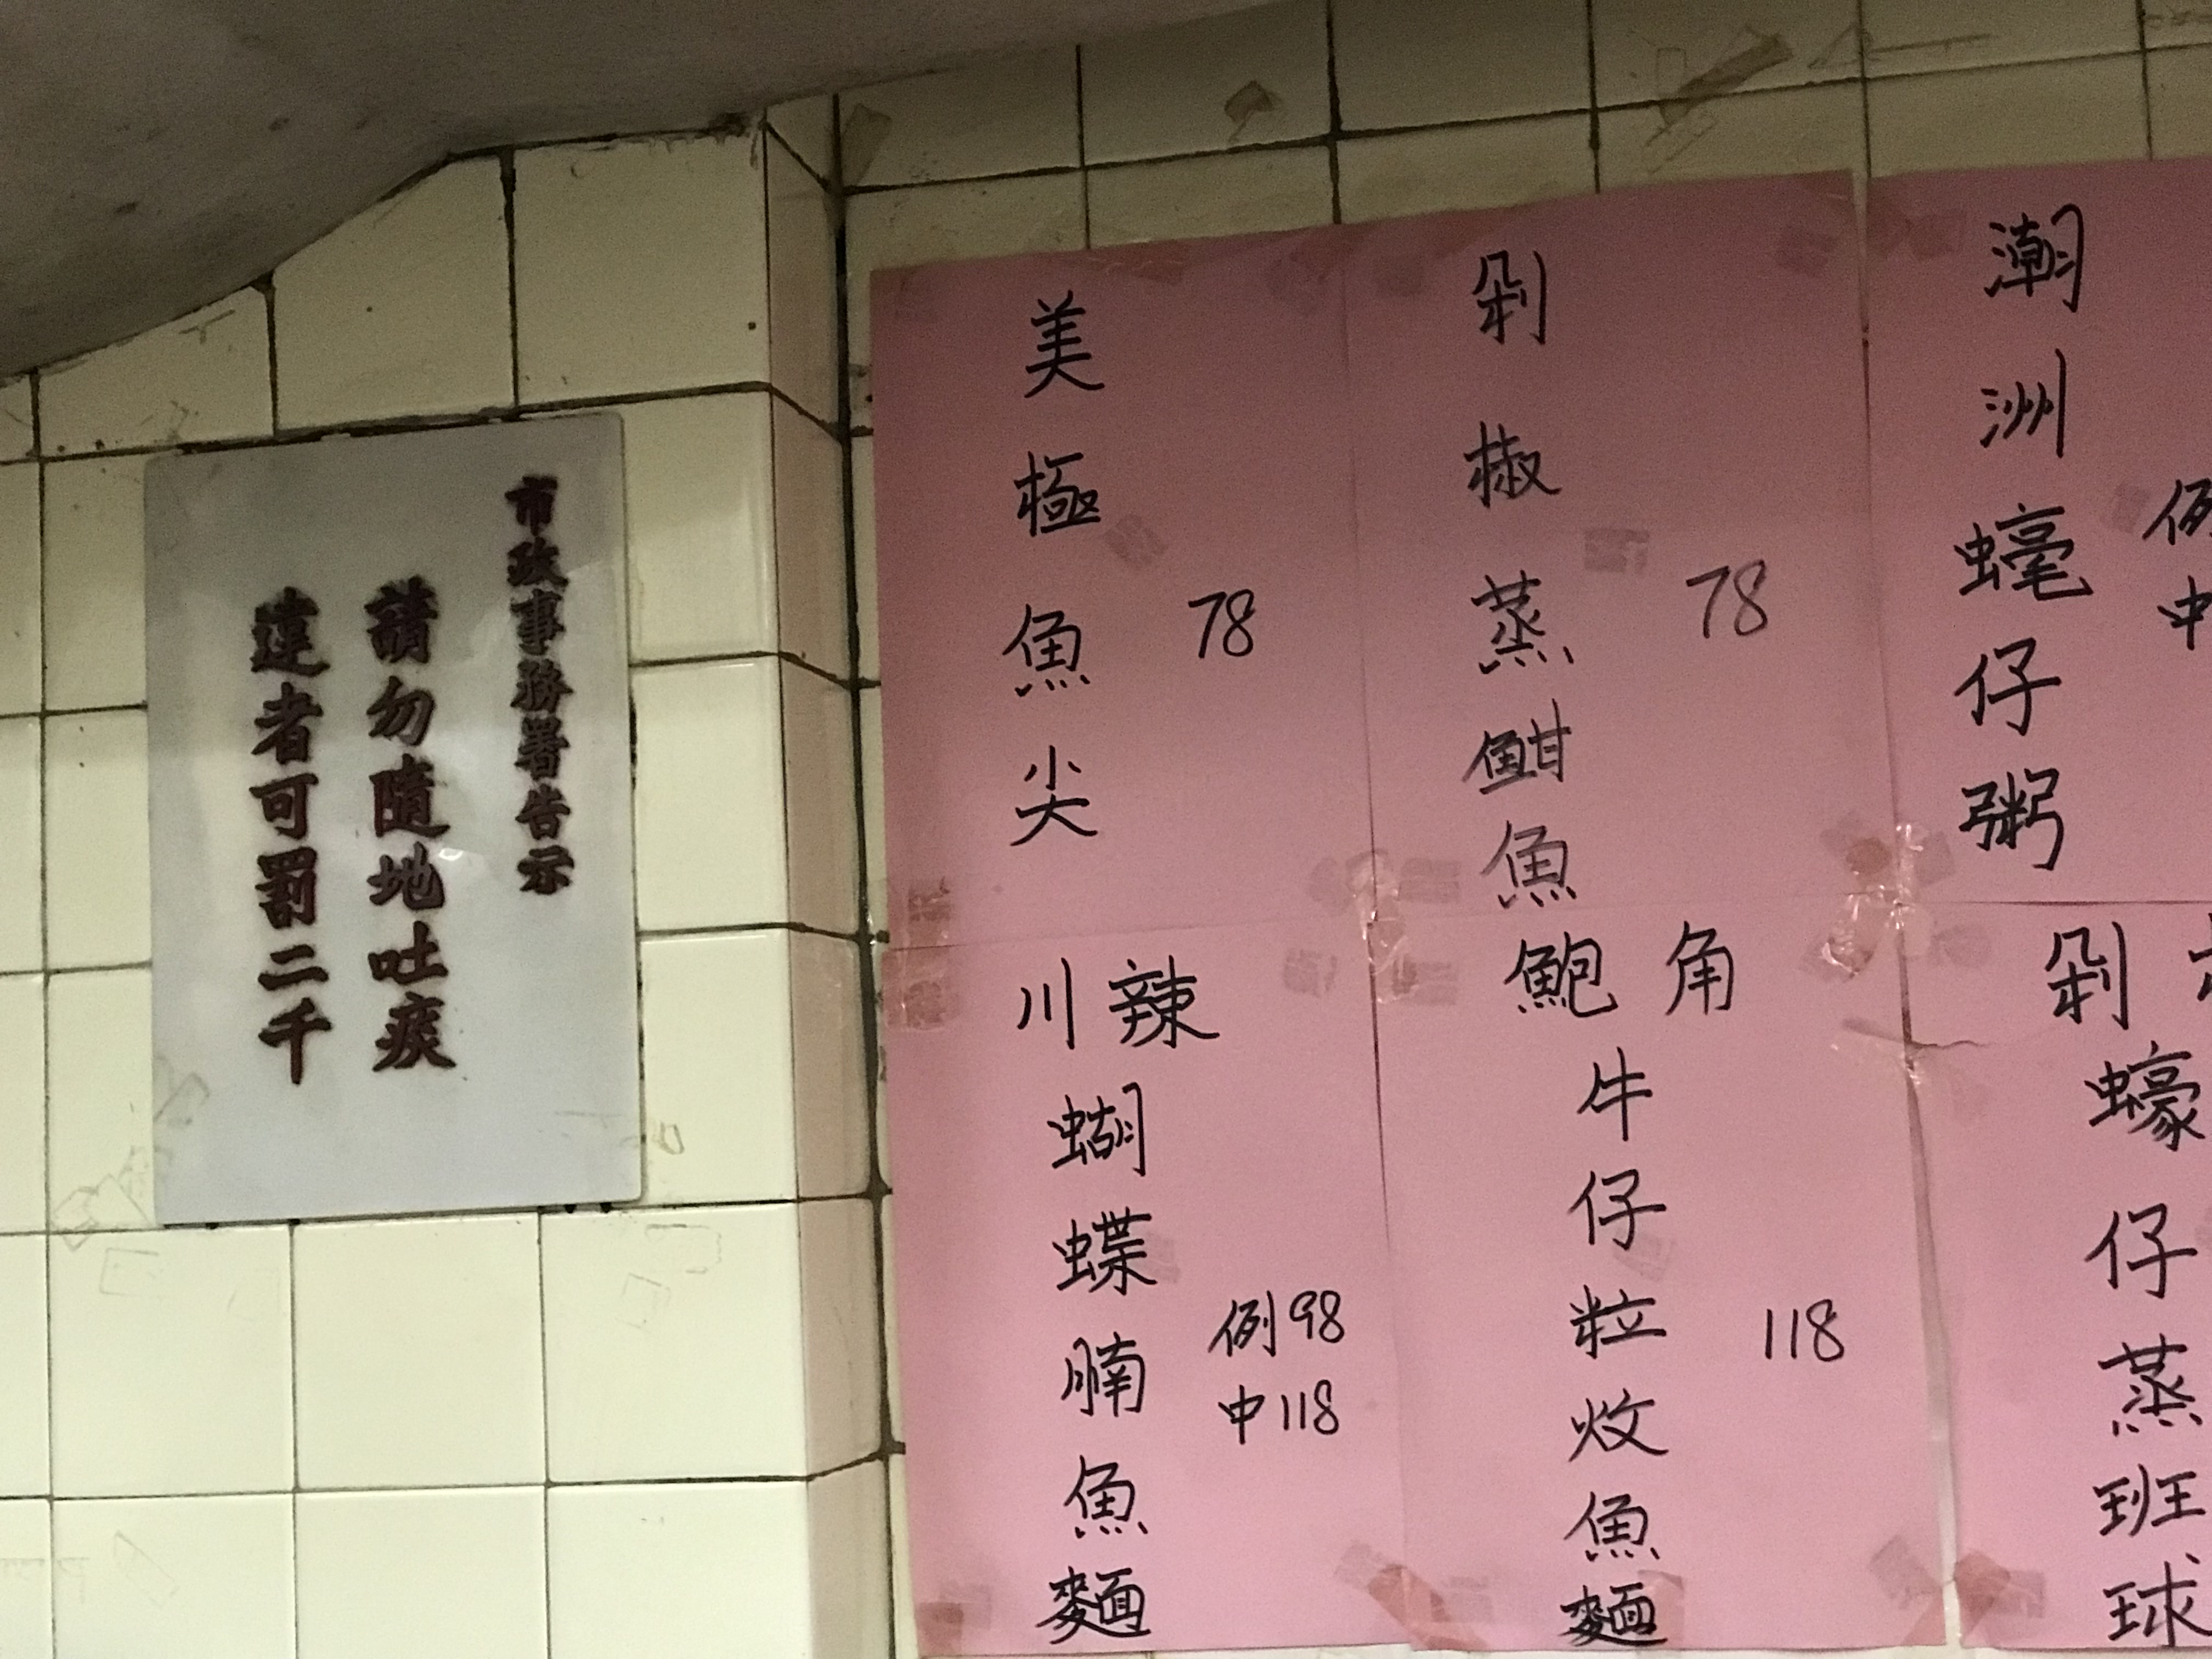 市政事務署告示
請勿隨地吐痰
違者可罰二千
美極魚尖
78
剁椒蒸魽魚
78
潮洲蠔仔粥
例
中
川辣
蝴蝶腩魚麵
例98
中118
鮑角
牛仔粒炆魚麵
118
剁
蠔仔蒸班球